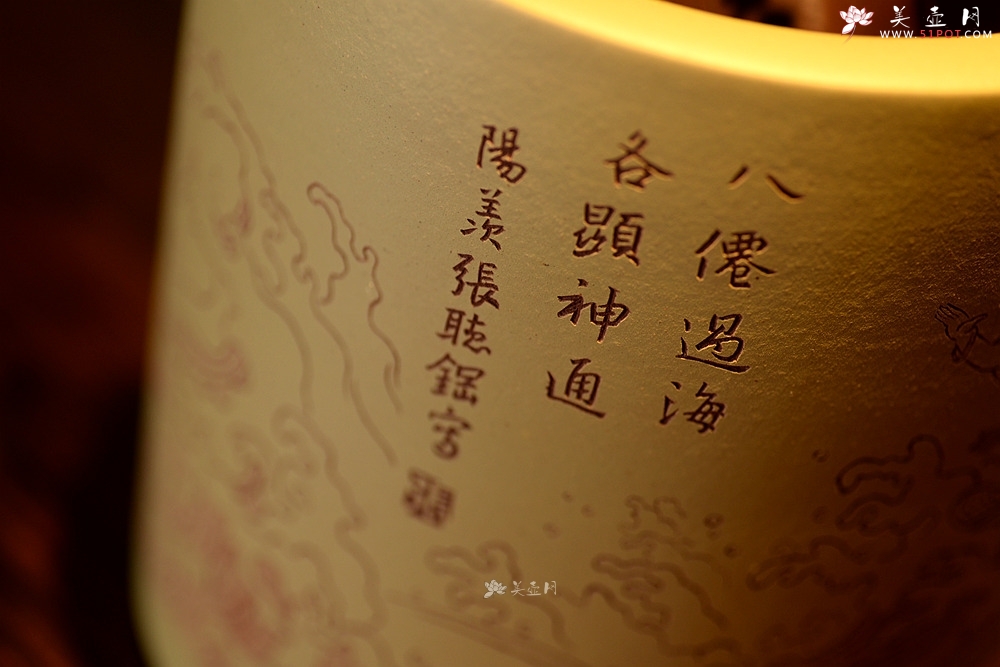 八僊過海
各顯神通
陽羨張聽鋸宮
美壶网
WWW.51POT.COM
美壶网